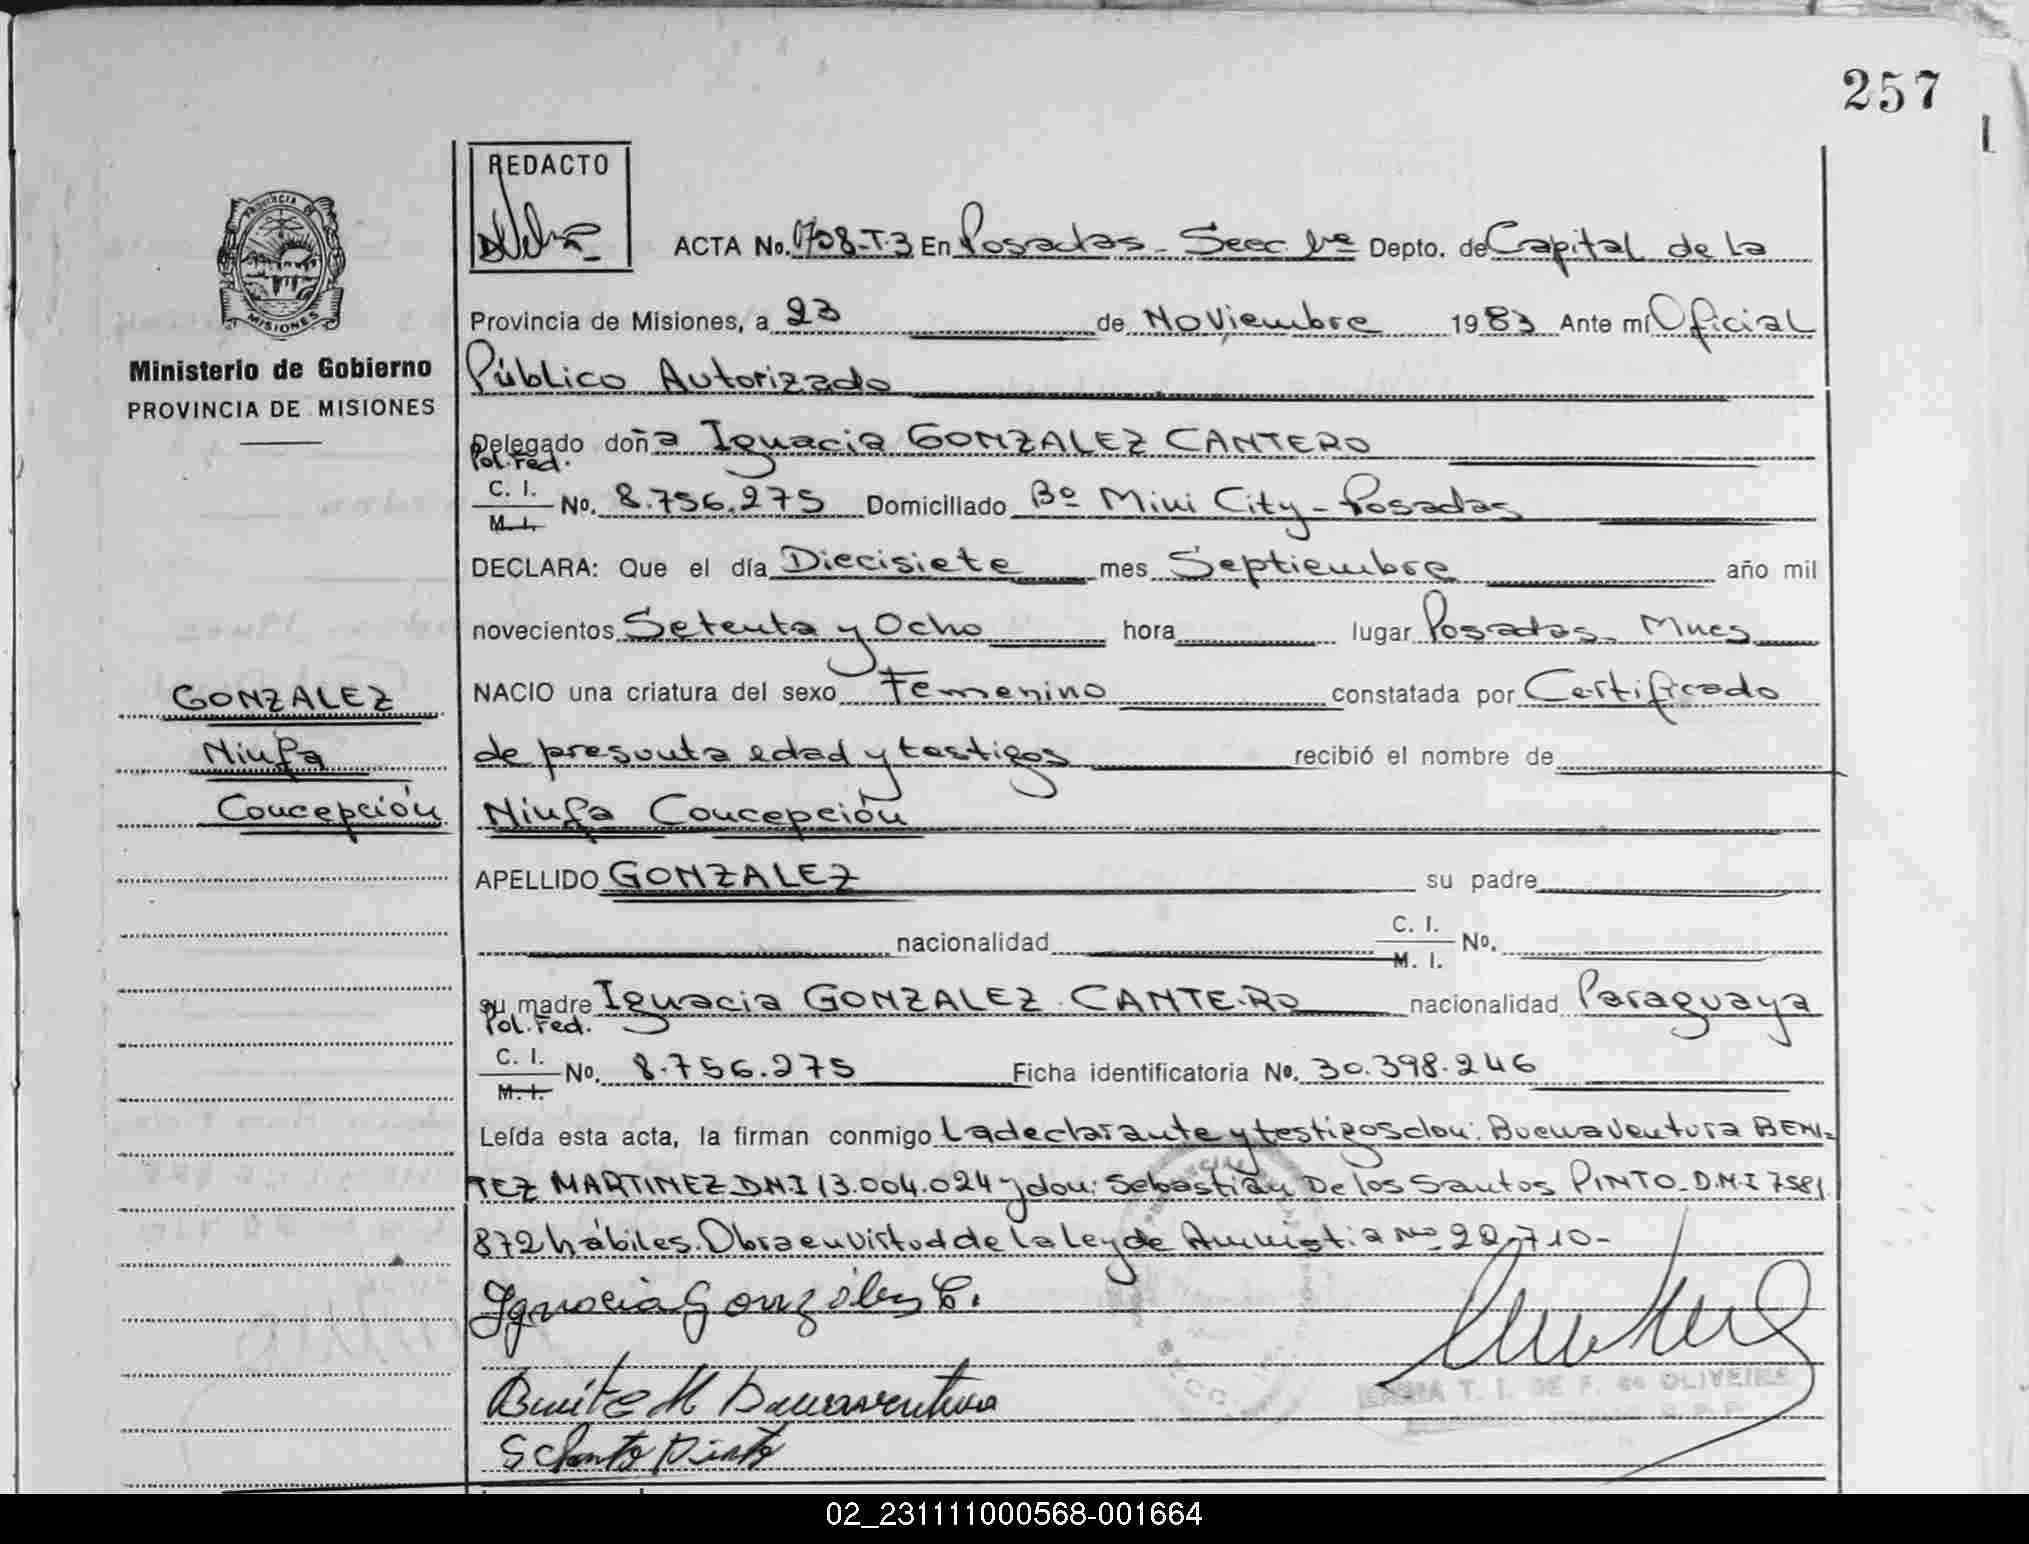 257
REDACTO
PROVINCIA DE
MISIONES
Ministerio de Gobierno
PROVINCIA DE MISIONES
ACTA No. 1708-T.3 En Posadas - Secc 1ra Depto. de Capital de la
Provincia de Misiones, a 23 de Noviembre 1983 Ante mí Oficial
Público Autorizado
Delegado doña Ignacia GONZALEZ CANTERO
Pol. Fed.
C. I.
M. I. No. 8.756.275 Domiciliado Bº Mini City - Posadas
DECLARA: Que el día Diecisiete mes Septiembre año mil
novecientos Setenta y Ocho hora lugar Posadas. Mnes
NACIO una criatura del sexo Femenino constatada por Certificado
de presunta edad y testigos recibió el nombre de
Ninfa Concepción
GONZALEZ
Ninfa
Concepción
APELLIDO GONZALEZ su padre
nacionalidad C. I.
M. I. No.
su madre Ignacia GONZALEZ CANTERO nacionalidad Paraguaya
Pol. Fed.
C. I.
M. I. No. 8.756.275 Ficha identificatoria No. 30.398.246
Leída esta acta, la firman conmigo La declarante y testigos don: Buenaventura BENI-
TEZ MARTINEZ DNI 13.004.024 y don: Sebastián De los Santos PINTO - D.N.I 7581.
872 hábiles. Obra en virtud de la ley de Amnistia Nº 22.710-
Ignacia González C.
Benitez M Buenaventura
S de Santo Pinto
T. I. DE F. de OLIVEIRA
02_231111000568-001664